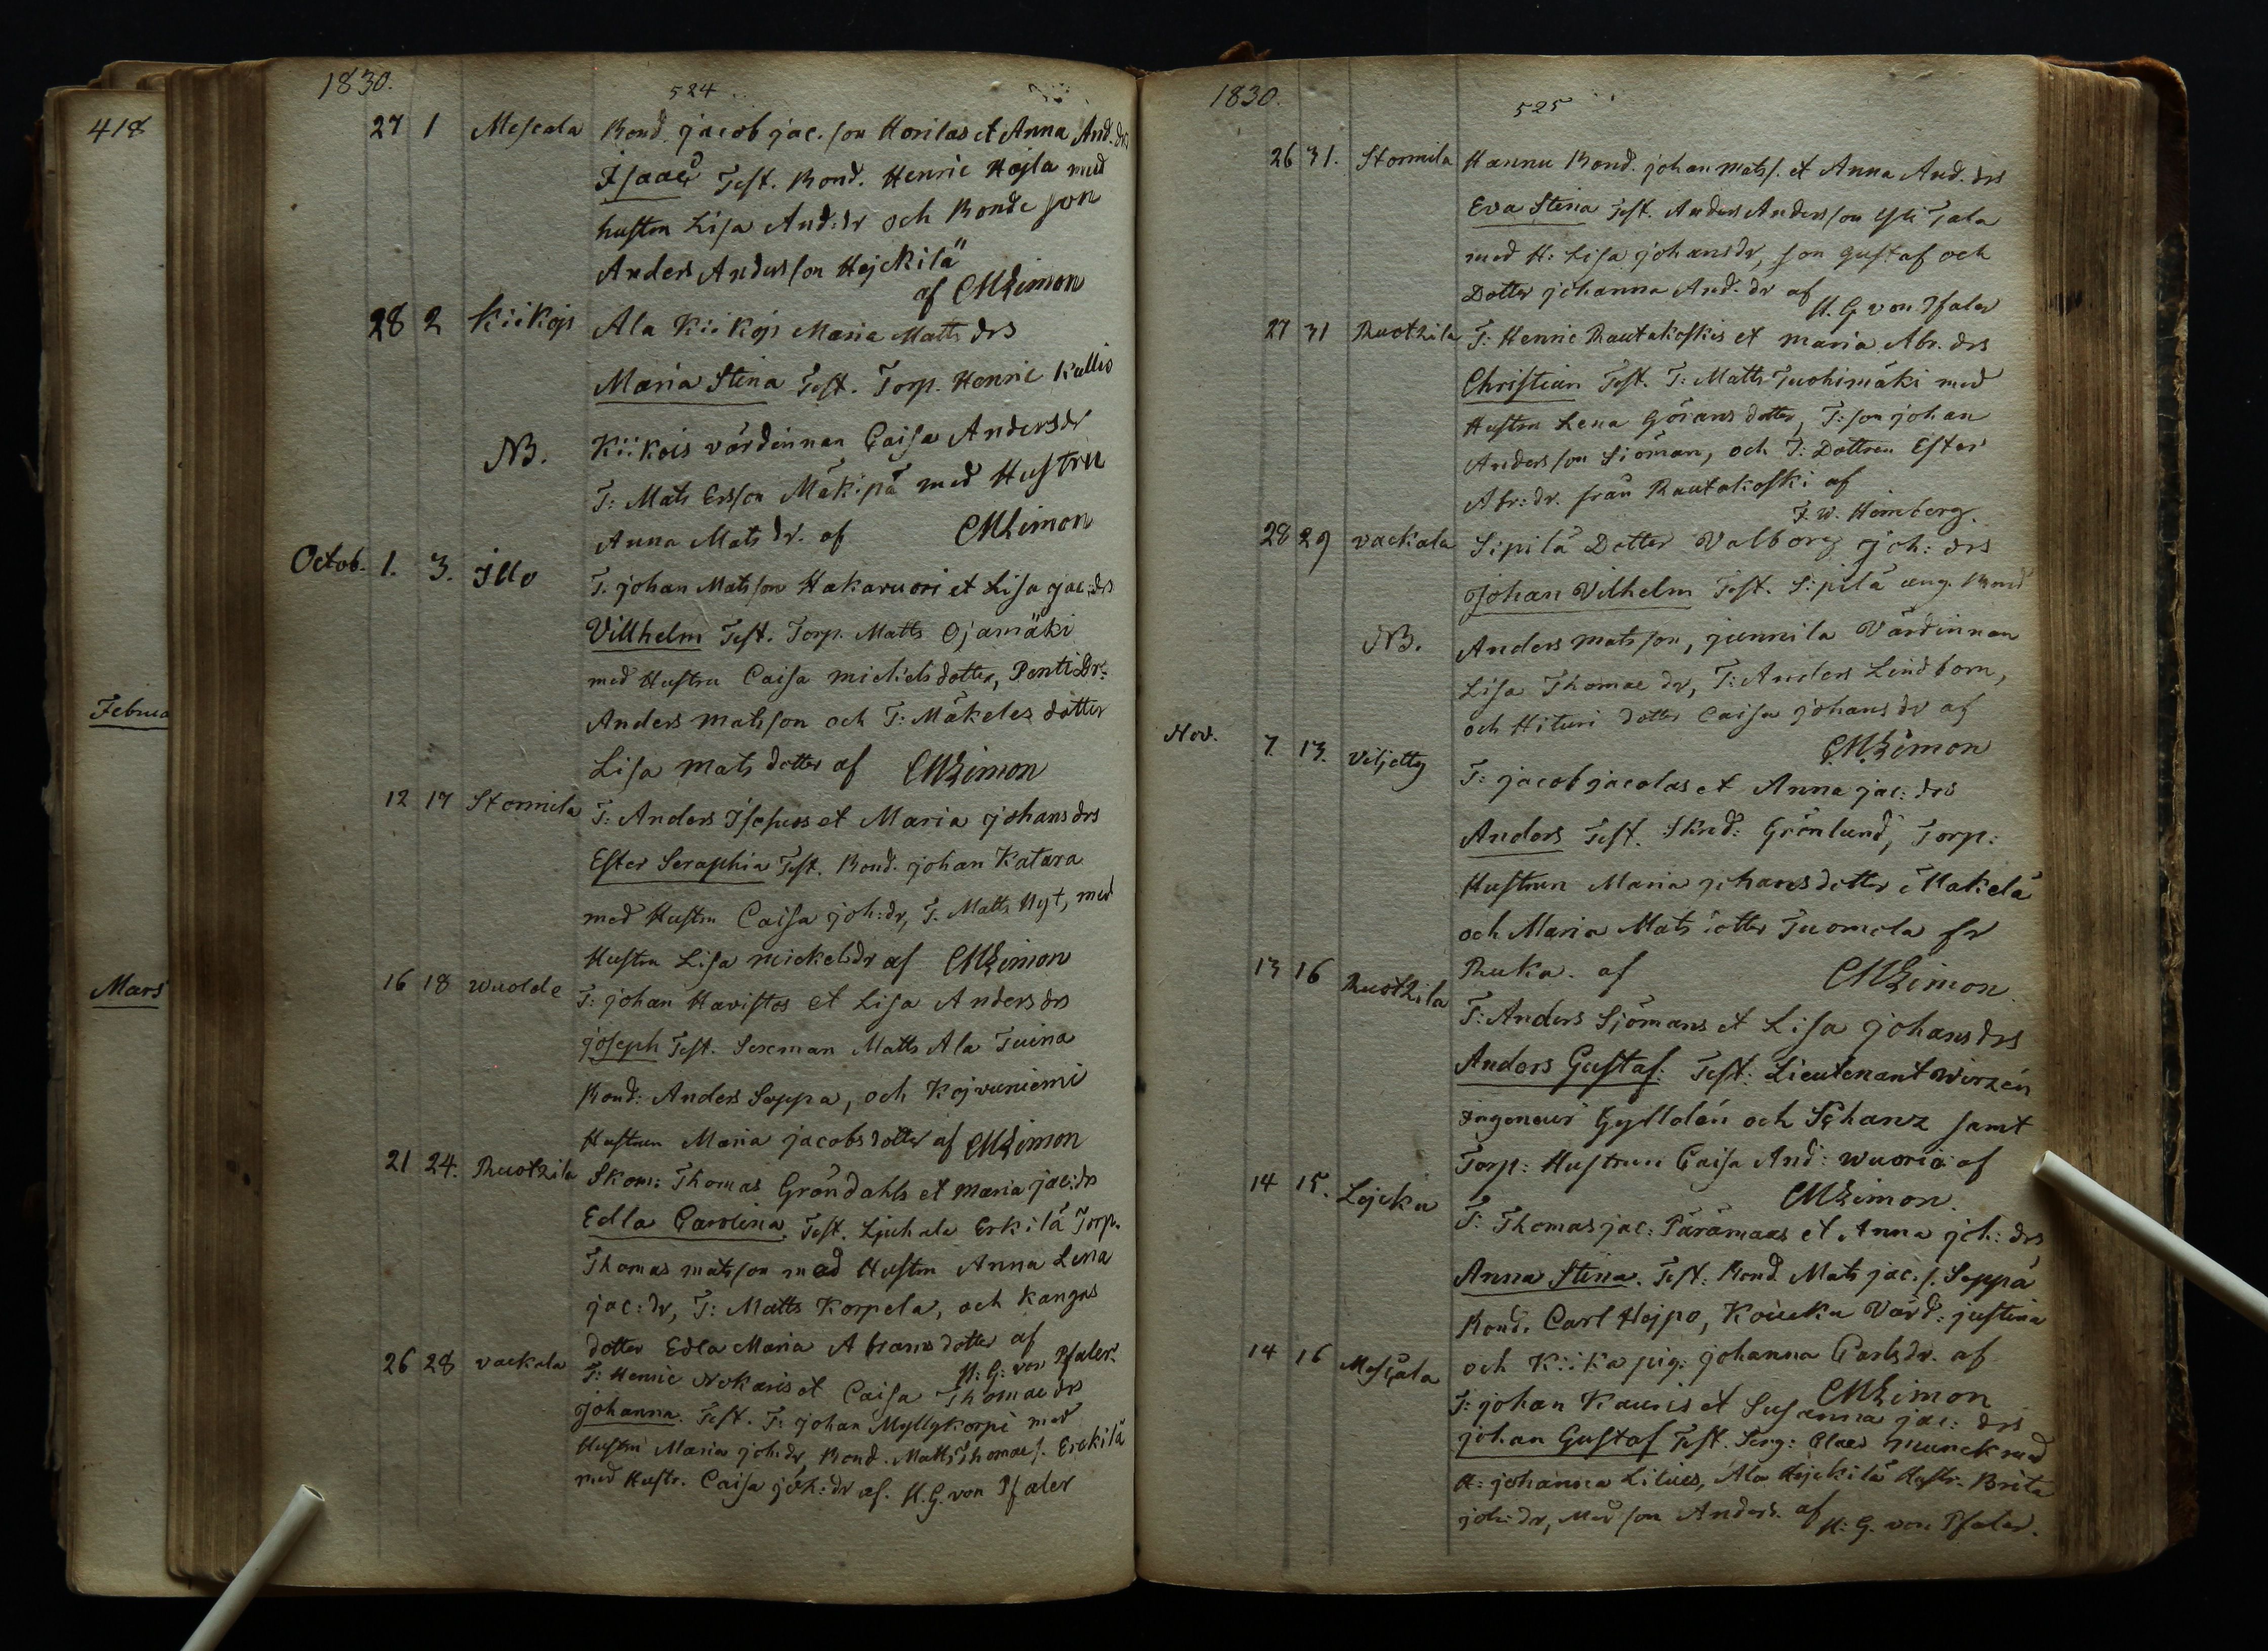 418
Februa
Mars
1830.
524
27 1 Mescala Bond. jacob jac. son Horilas et Anna And. drs
Isaac Test. Bond. Henric Hojla med
hustru Lisa And:dr och Bonde son
Anders Andersson Hejckilä
af CMLimon
28 2 Kiikojs Ala Kiikojs Maria Matts drs
Maria Stina Test. Torp. Henric Kallio
NB. Kiikois värdinnan Caisa Andersdr
T: Mats Ersson Mäkipä med Hustru
Anna Mats dr. af CMLimon
Octob. 1. 3. Illo T. johan Matsson Hakavuori et Lisa jac:drs
Villhelm Test. Torp. Matts Ojamäki
med Hustru Caisa mickels dotter, Penti Dr:
Anders matsson och T: Mäkeles dotter
Lisa mats dotter af CMLimon
12 17 Stormila T: Anders Isapuss et Maria johans drs
Ester Seraphia Test. Bond. johan Katara
med Hustru Caisa joh:dr, T. Matts Nyt, med
Hustru Lisa mickelsdr af CMLimon
16 18 Wuolde T: johan Havistos et Lisa Anders drs
joseph Test. Sexman Matts Ala Tuina
Bond: Anders Seppa, och Kojvuniemi
Hustrun Maria jacobs dotter af CMLimon
21 24. Ruotzila Skom: Thomas Gröndahls et maria jac:drs
Edla Carolina. Test. Ljuhala Erkilä Torp.
Thomas matsson med Hustru Anna Lena
jac: dr, T: Matts Korpela, och Kangas
dotter Edla Maria Abrams dotter af
H: G: von Pfaler.
26 28 vackala T: Henric Nokaris et Caisa Thomae drs
johanna. Test. T: johan Myllykorpi med
Hustru Maria joh:dr, Bond. Matts Thomae s. Erckilä
med Hustr. Caisa joh: dr af. H. G. von Pfaler
1830.
525
26 31. Stormila Hannu Bond. johan mats s. et Anna And. drs
Eva Stina Test. Anders Andersson Yli Tala
med H: Lisa johansdr, son Gustaf och
Dotter johanna And. dr af
H. G. von Pfaler
27 31 Ruotzila T: Henric Rautakoskis et maria Abr. drs
Christian Test. T: Matts Tuohimäki med
Hustru Lena Görans dotter, T: son johan
Andersson Siöman, och T: Dottren Ester
Abr: dr. från Rautakoski af
F. W. Heimberg.
28 29 vackala Sipilä Dotter Valborg joh: drs
Johan Vilhelm Test. Sipilä ung. Bond
NB. Anders matsson, junnila Värdinnan
Lisa Thomae dr, T: Anders Lindborn,
och Hituri dotter Caisa johans dr af
CMLimon
Nov. 7. 13. Viljotty T: jacob jacolas et Anna jac: drs
Anders Test. Skrd: Grönlund, Torp:
Hustrun Maria johans dotter Makelä
och Maria Mats dotter Tuomela fr
Ruka. af CMLimon.
13 16 Ruotzila T: Anders Sjömans et Lisa johans drs
Anders Gustaf: Test: Lieutenant Wirzén
Ingeneur Gylldén och Schanz samt
Torp: Hustrun Caisa And: Wuoria af
CMLimon.
14 15. Lojcku T: Thomas jac: Päramaas et Anna joh: drs
Anna Stina. Test: Bond. Mats jac. s. Seppä
Bond. Carl Hojpo, Koucku Värd: justina
och Kiika pig: johanna Carlsdr. af
CMLimon
14 16 Mescala T: johan Kauris et Susanna jac: drs
johan Gustaf Test. Serg: Claes Munck med
H: johanna Lilius, Ala Hejckilä Hustr. Brita
joh: dr, Med son Anders. af H: G. von Pfaler.